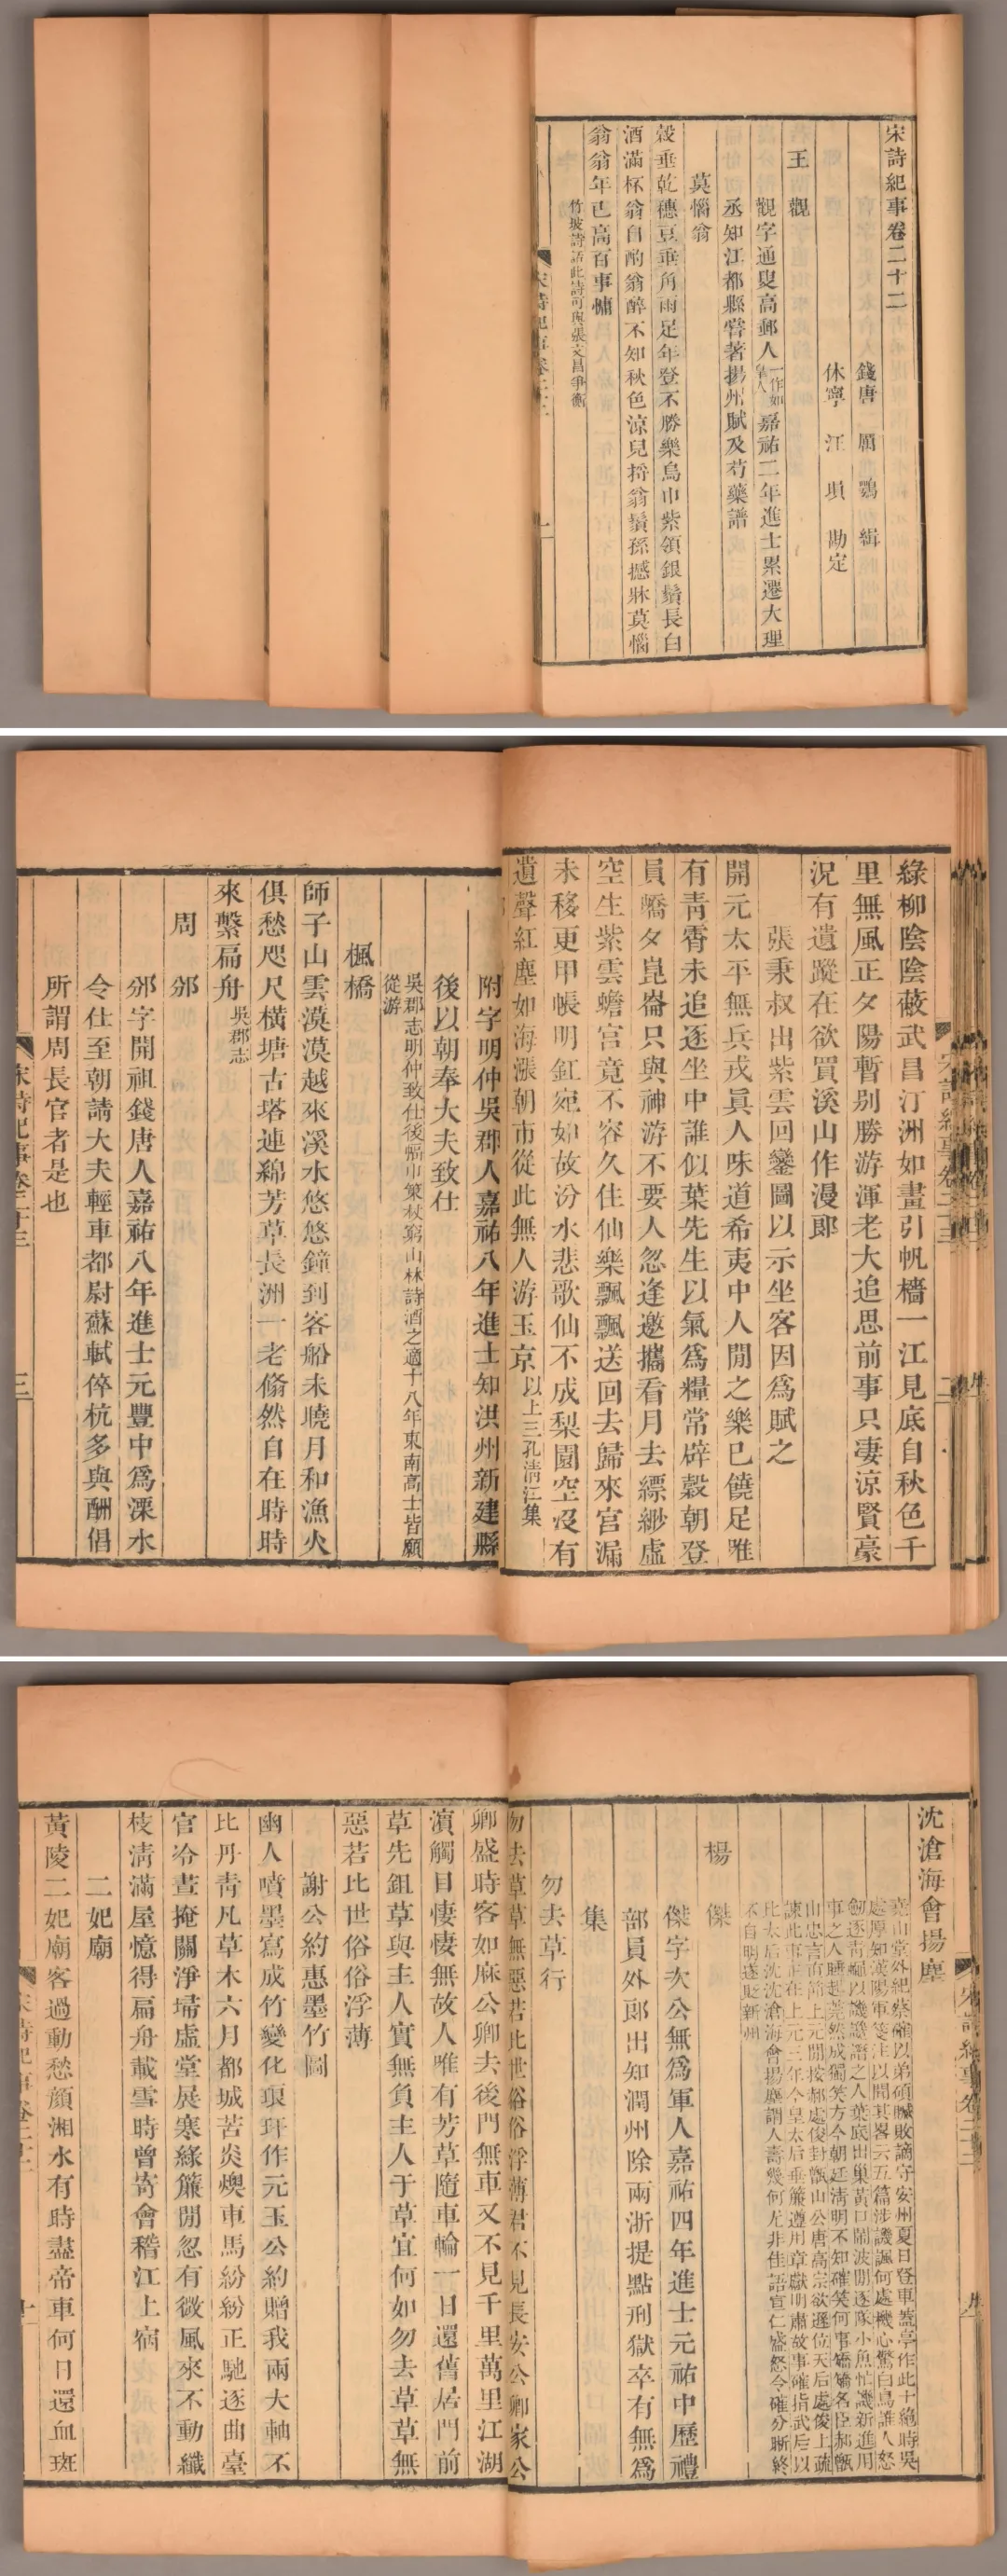 宋詩紀事卷二十二
錢唐 厲鶚 緝
休寧 汪塤 勘定
王觀
觀字通叟高郵人一作如皋人嘉祐二年進士累遷大理
丞知江都縣嘗著揚州賦及芍藥譜
莫惱翁
穀垂乾穗豆垂角雨足年登不勝樂烏巾紫領銀鬚長白
酒滿杯翁自酌翁醉不知秋色涼兒捋翁鬚孫撼牀莫惱
翁翁年已高百事慵
竹坡詩話此詩可與張文昌爭衡
宋詩紀事卷二十二
一
綠柳陰陰蔽武昌汀洲如畫引帆檣一江見底自秋色千
里無風正夕陽暫別勝游渾老大追思前事只凄涼賢豪
況有遺蹤在欲買溪山作漫郎
張秉叔出紫雲回鑾圖以示坐客因爲賦之
開元太平無兵戎眞人味道希夷中人閒之樂已饒足唯
有青霄未追逐坐中誰似葉先生以氣爲糧常辟穀朝登
員嶠夕崑崙只與神游不要人忽逢邀攜看月去縹緲虛
空生紫雲蟾宮竟不容久住仙樂飄飄送回去歸來宮漏
未移更甲帳明釭宛如故汾水悲歌仙不成梨園空沒有
遺聲紅塵如海漲朝市從此無人游玉京以上三孔淸江集
附字明仲吳郡人嘉祐八年進士知洪州新建縣
後以朝奉大夫致仕
吳郡志明仲致仕後幅巾策杖窮山林詩酒之適十八年東南高士皆願
從游
楓橋
師子山雲漠漠越來溪水悠悠鐘到客船未曉月和漁火
俱愁咫尺橫塘古塔連綿芳草長洲一老翛然自在時時
來繫扁舟吳郡志
周邠
邠字開祖錢唐人嘉祐八年進士元豐中爲溧水
令仕至朝請大夫輕車都尉蘇軾倅杭多與酬倡
所謂周長官者是也
宋詩紀事卷二十三
三
沈滄海會揚塵
堯山堂外紀蔡確以弟碩贓敗謫守安州夏日登車蓋亭作此十絶時吳
處厚知漢陽軍箋注以聞其畧云五篇涉譏諷何處機心驚白鳥誰人怒
劒逐靑蠅以譏讒譖之人葉底出巢黃口鬧波閒逐隊小魚忙譏新進用
事之人睡起莞然成獨笑方今朝廷淸明不知確笑何事矯矯名臣郝甑
山忠言直節上元閒按郝處俊封甑山公唐高宗欲遜位天后處俊上疏
諫此事正在上元三年今皇太后垂簾遵用章獻明肅故事確指武后以
比太后沈沈滄海會揚塵謂人壽幾何尤非佳語宣仁盛怒令確分晰終
不自明遂貶新州
楊傑
傑字次公無爲軍人嘉祐四年進士元祐中歷禮
部員外郎出知潤州除兩浙提點刑獄卒有無爲
集
勿去草行
勿去草草無惡若比世俗俗浮薄君不見長安公卿家公
卿盛時客如麻公卿去後門無車又不見千里萬里江湖
濱觸目悽悽無故人唯有芳草隨車輪一日還舊居門前
草先鉏草與主人實無負主人于草宜何如勿去草草無
惡若比世俗俗浮薄
謝公約惠墨竹圖
幽人噴墨寫成竹變化琅玕作元玉公約贈我兩大軸不
比丹青凡草木六月都城苦炎燠車馬紛紛正馳逐曲臺
官冷晝掩關淨埽虛堂展寒綠簾閒忽有微風來不動纖
枝淸滿屋憶得扁舟載雪時曾寄會稽江上宿
二妃廟
黃陵二妃廟客過動愁顏湘水有時盡帝車何日還血斑